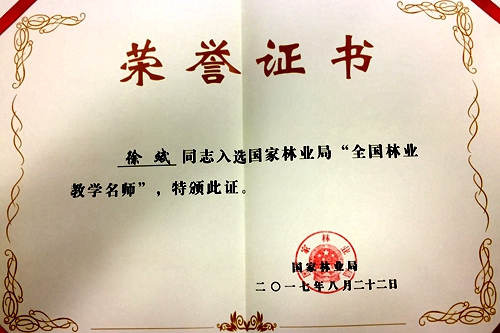 荣誉证书
徐斌同志入选国家林业局“全国林业
教学名师”，特颁此证。
国家林业局
二〇一七年八月二十二日